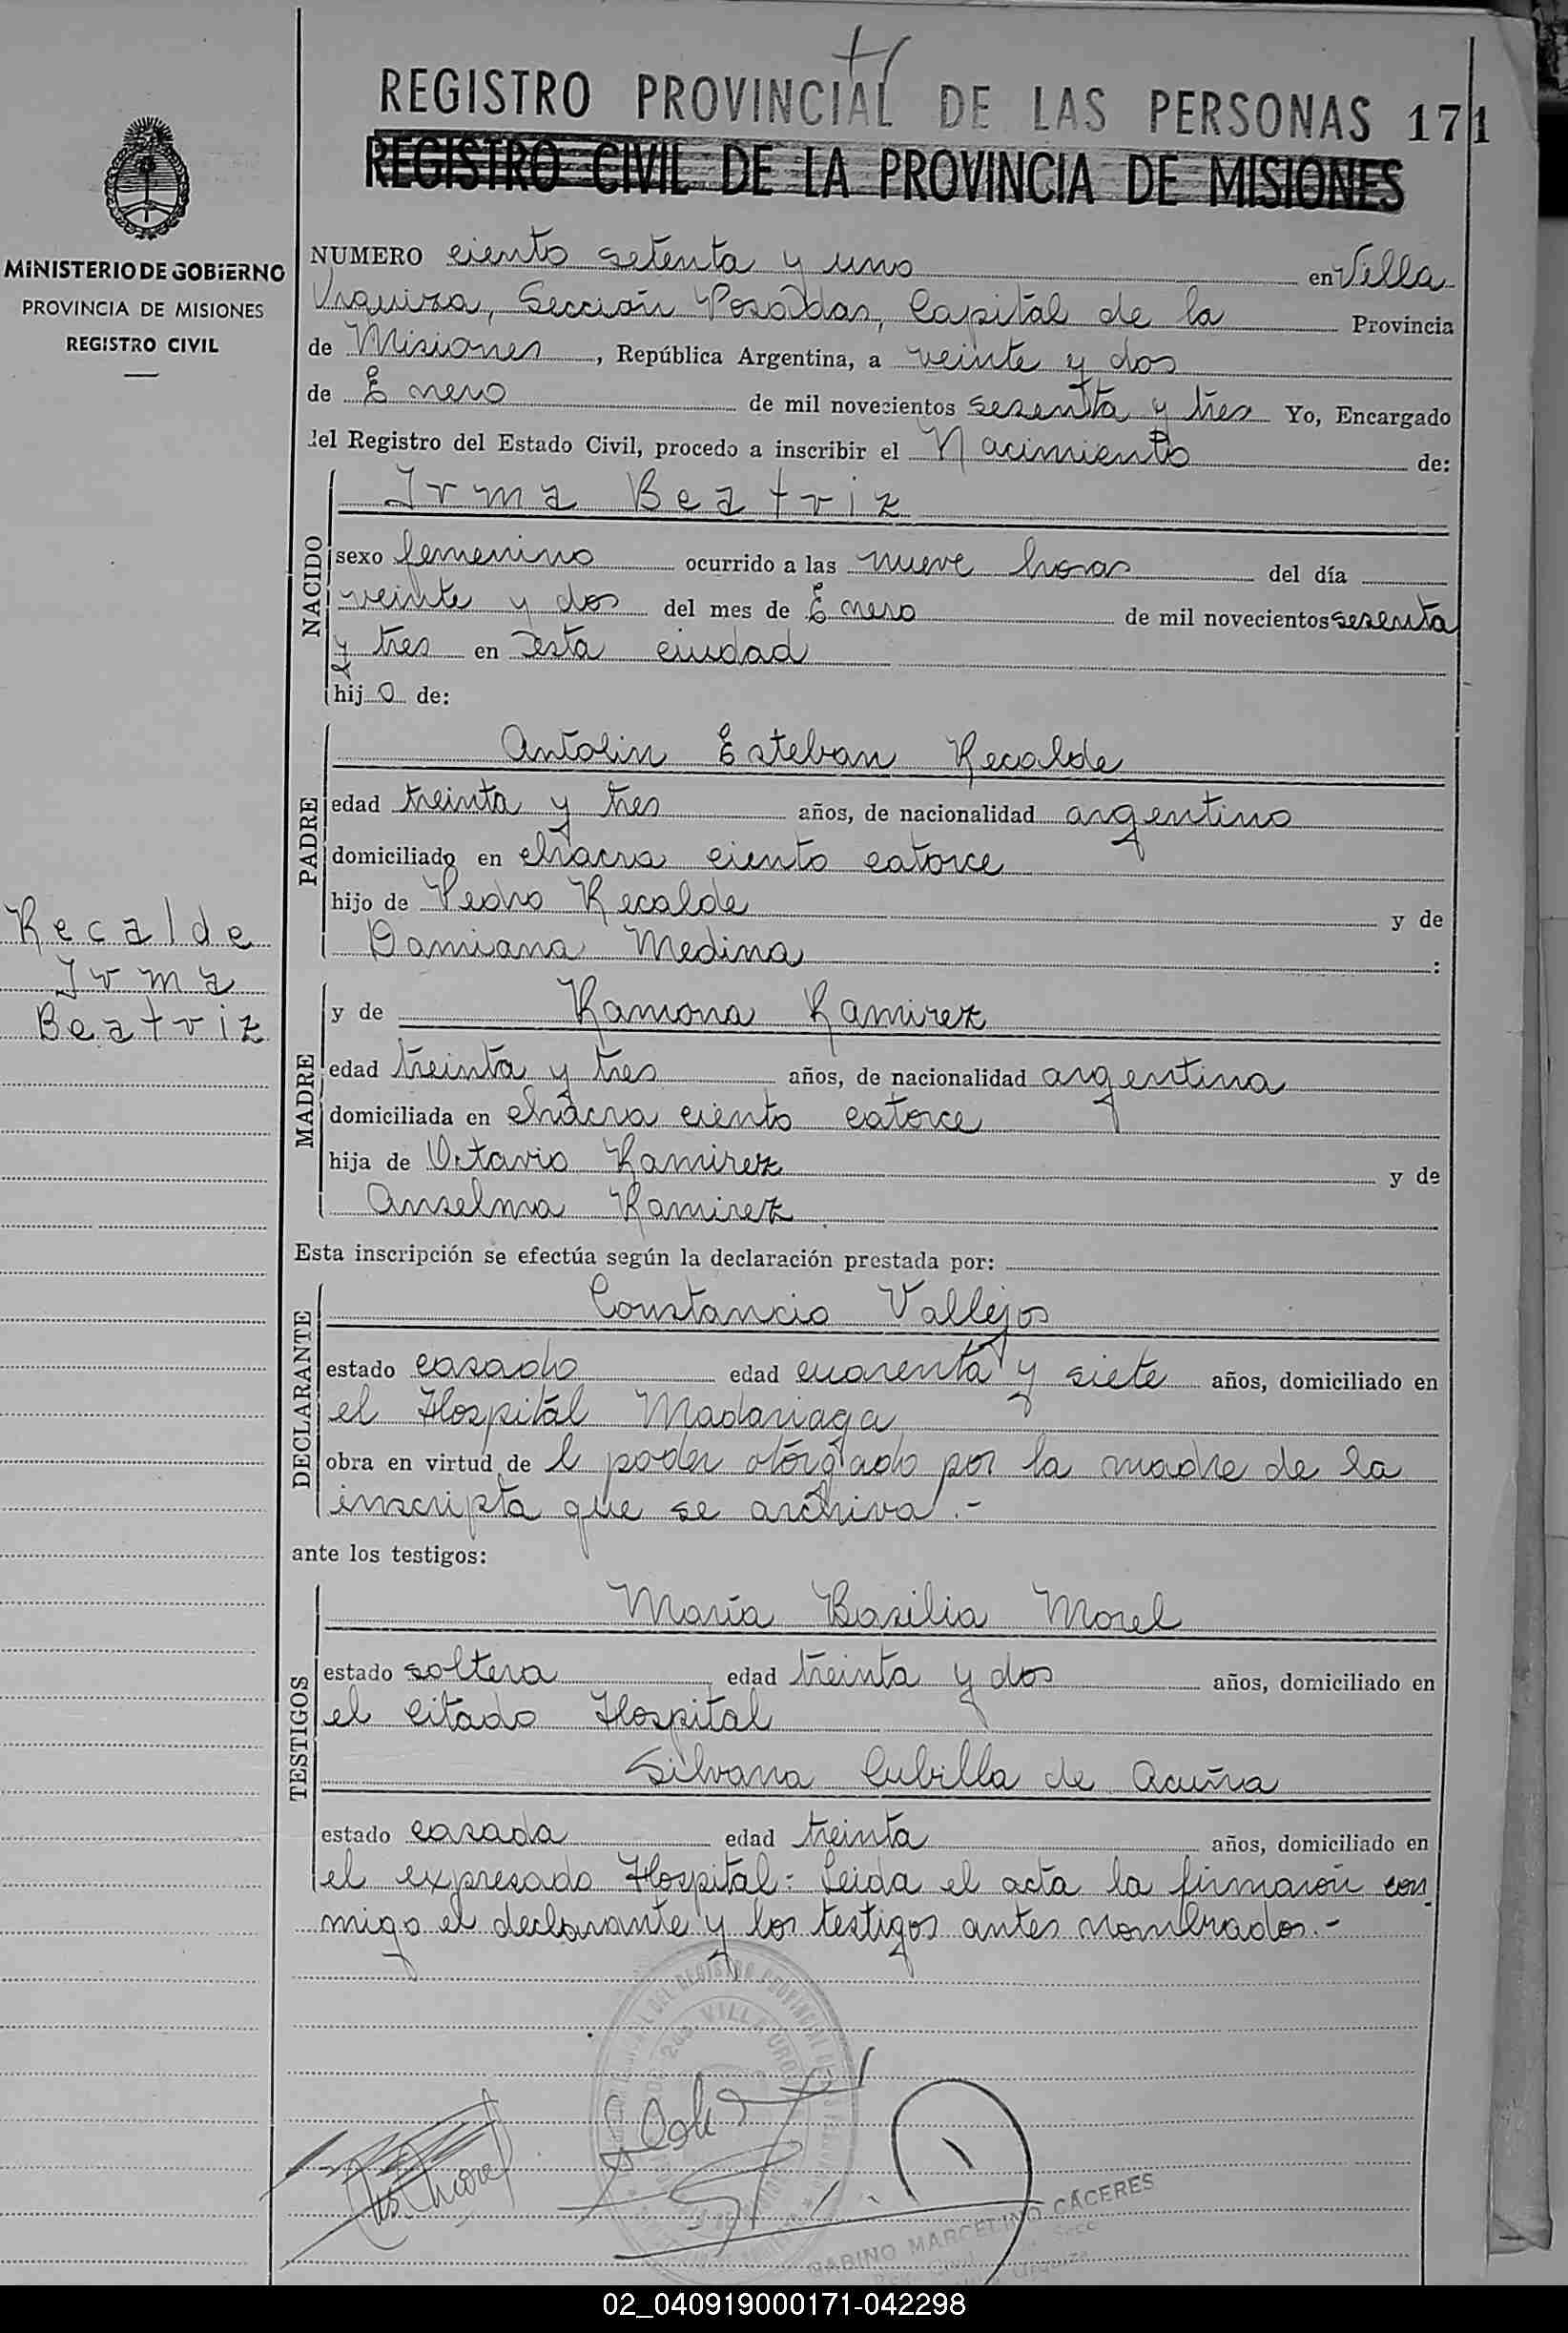 REGISTRO PROVINCIAL DE LAS PERSONAS 171
REGISTRO CIVIL DE LA PROVINCIA DE MISIONES
MINISTERIO DE GOBIERNO
PROVINCIA DE MISIONES
REGISTRO CIVIL
NUMERO ciento setenta y uno en Villa
Urquiza, Sección Posadas, Capital de la Provincia
de Misiones, República Argentina, a veinte y dos
de Enero de mil novecientos sesenta y tres Yo, Encargado
del Registro del Estado Civil, procedo a inscribir el Nacimiento de:
NACIDO
Irma Beatriz
sexo femenino ocurrido a las nueve horas del día
veinte y dos del mes de Enero de mil novecientos sesenta
y tres en esta ciudad
hija de:
PADRE
Antolin Esteban Recalde
edad treinta y tres años, de nacionalidad argentino
domiciliado en chacra ciento catorce
hijo de Pedro Recalde y de
Damiana Medina :
Recalde
Irma
Beatriz
MADRE
y de Ramona Ramirez
edad treinta y tres años, de nacionalidad argentina
domiciliada en chacra ciento catorce
hija de Octavio Ramirez y de
Anselma Ramirez
Esta inscripción se efectúa según la declaración prestada por:
DECLARANTE
Constancio Vallejos
estado casado edad cuarenta y siete años, domiciliado en
el Hospital Madariaga
obra en virtud de l poder otorgado por la madre de la
inscripta que se archiva.-
ante los testigos:
TESTIGOS
María Basilia Morel
estado soltera edad treinta y dos años, domiciliado en
el citado Hospital
Silvana Cubilla de Acuña
estado casada edad treinta años, domiciliado en
el expresado Hospital: Leida el acta la firmaron con
migo el declarante y los testigos antes nombrados.-
SABINO MARCELINO CÁCERES
02_040919000171-042298